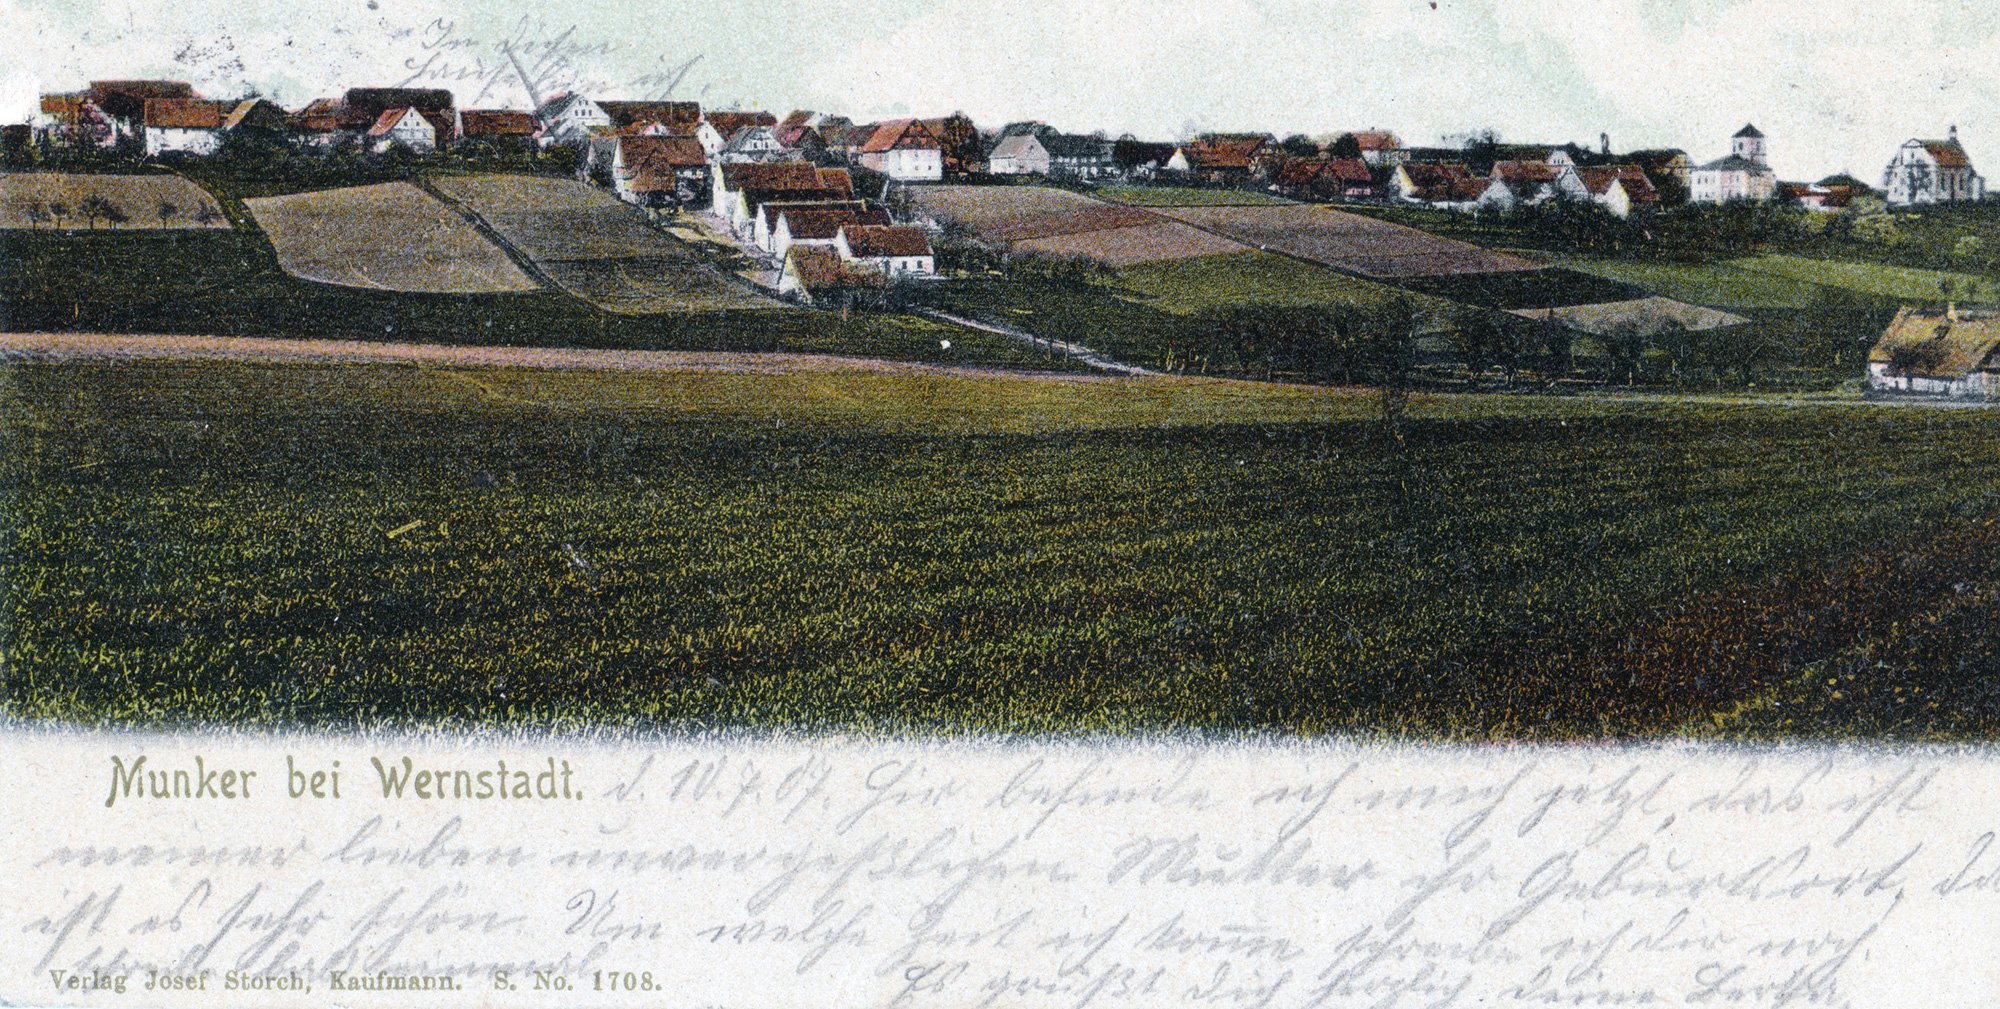 In diesen
Hause bin ich.
Munker bei Wernstadt. d. 10.7.07. Hir befinde ich mich jetzt, das ist
meiner lieben unvergeßlichen Mutter ihr Geburtsort, da
ist es sehr schön. Um welche Zeit ich komme schreibe ich dir noch.
Verlag Josef Storch, Kaufmann. S. No. 1708.
Es grüßt Dich herzlich deine Berta.